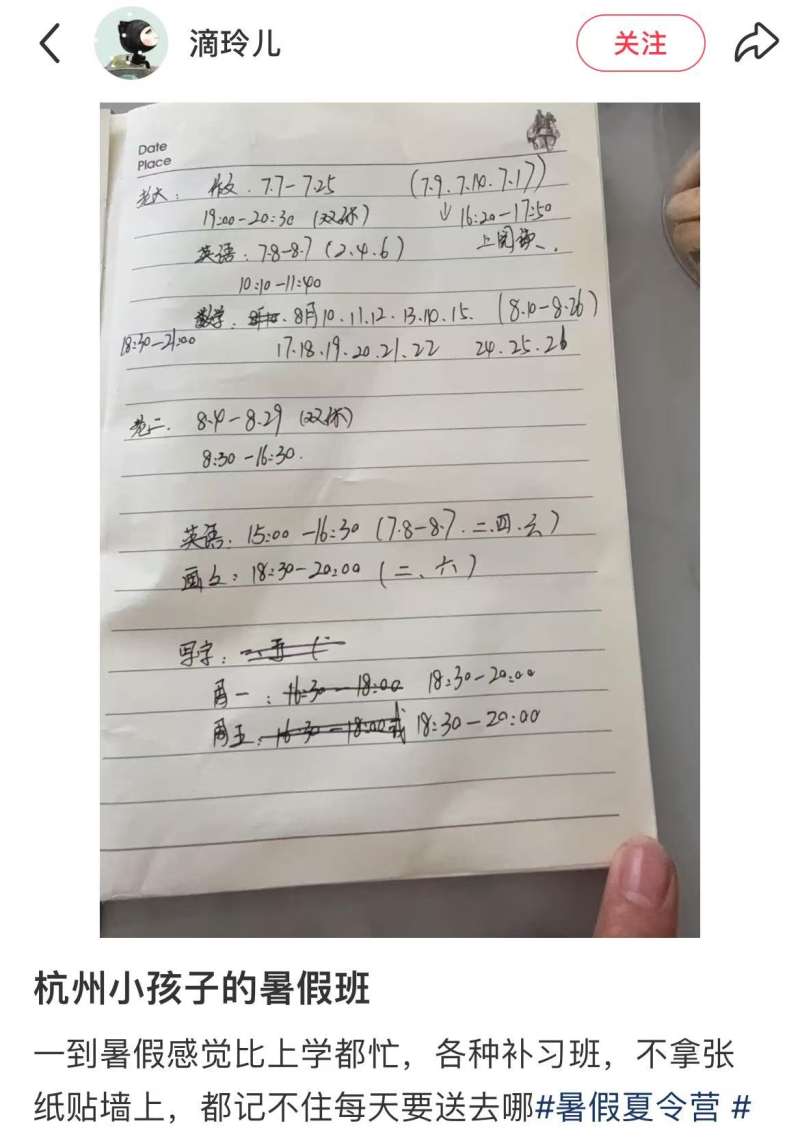 滴玲儿
关注
Date
Place
老大: 作文. 7.7-7.25 (7.9. 7.10. 7.17)
19:00-20:30 (双休) ↓ 16:20-17:50
英语: 7.8-8.7 (2.4.6) 上阅读.
10:10-11:40
数学: 8月10.11.12.13.14.15. (8.10-8.26)
18:30-21:00 17.18.19.20.21.22 24.25.26
老二. 8.4-8.29 (双休)
8:30-16:30.
英语: 15:00-16:30 (7.8-8.7.二.四.六)
画画: 18:30-20:00 (二、六)
写字:
周一: 16:30-18:00 18:30-20:00
周五: 16:30-18:00 18:30-20:00
杭州小孩子的暑假班
一到暑假感觉比上学都忙，各种补习班，不拿张
纸贴墙上，都记不住每天要送去哪#暑假夏令营 #